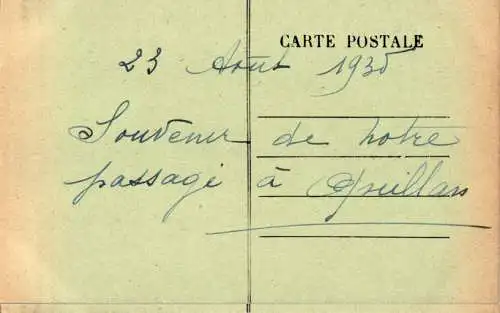 CARTE POSTALE
23 Août 1935
Souvenir de notre
passage à Quillan